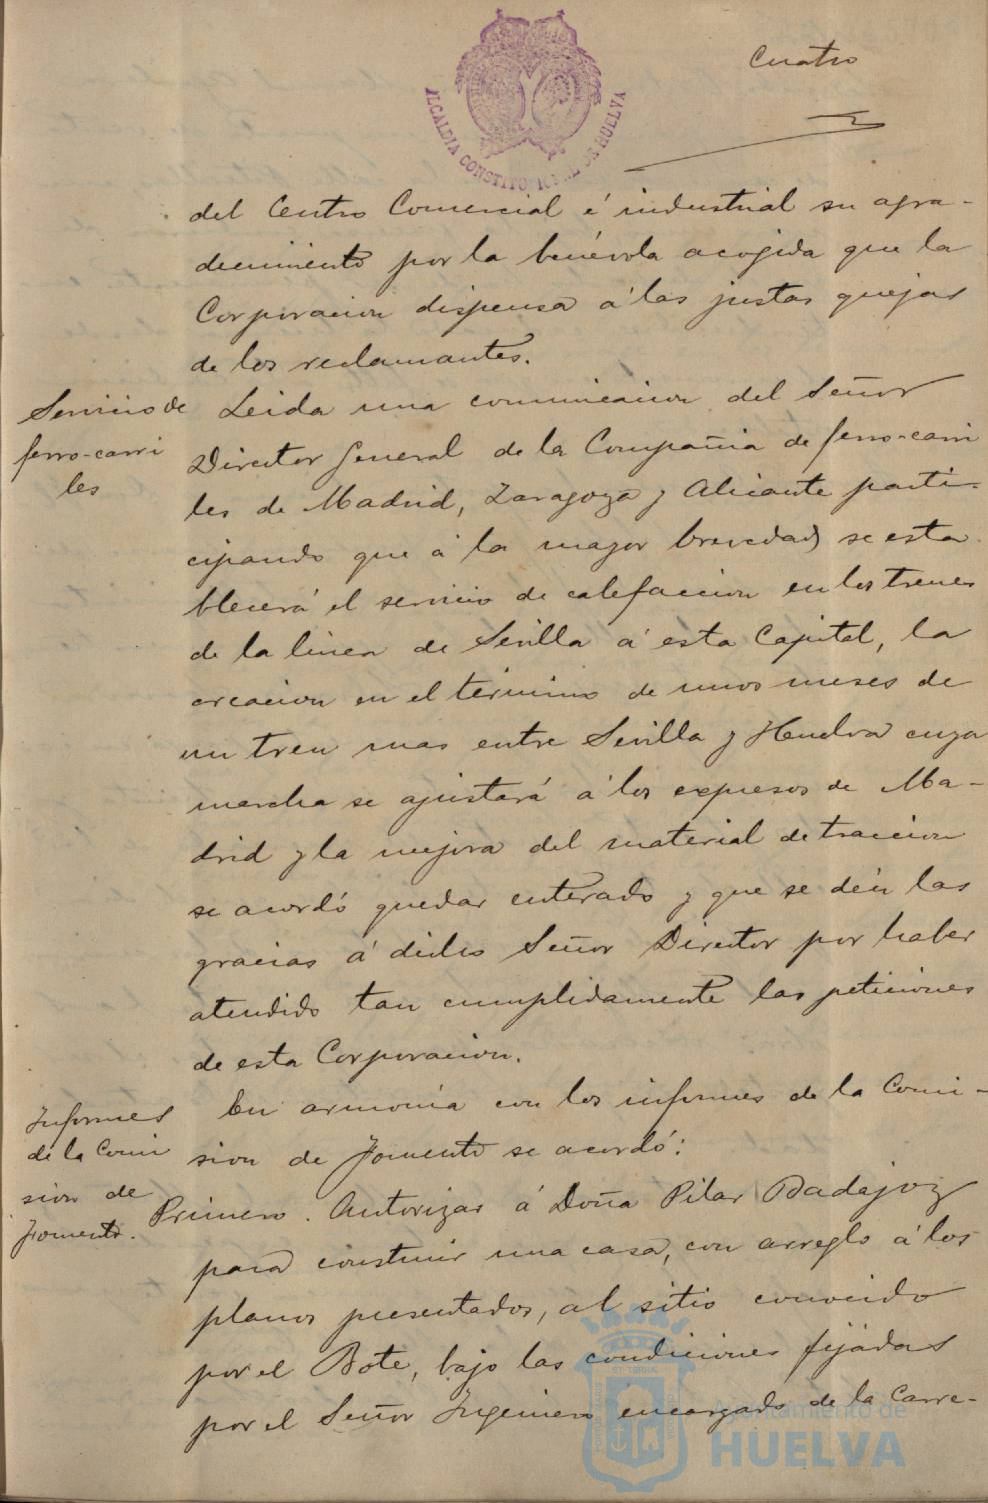 Cuatro
ALCALDIA CONSTITUCIONAL DE HUELVA
del Centro Comercial é industrial su agra-
decimiento por la benévola acogida que la
Corporacion dispensa á las justas quejas
de los reclamantes.
Servicio de
ferro-carri
les
Leida una comunicacion del Señor
Director General de la Compañia de ferro-carri
les de Madrid, Zaragoza y Alicante parti-
cipando que á la mayor brevedad se esta
blecerá el servicio de calefaccion en los trenes
de la linea de Sevilla á esta Capital, la
creacion en el término de unos meses de
un tren mas entre Sevilla y Huelva cuya
marcha se ajustará á los expresos de Ma-
drid y la mejora del material de traccion
se acordó quedar enterado y que se dén las
gracias á dicho Señor Director por haber
atendido tan cumplidamente las peticiones
de esta Corporacion.
Informes
de la Comi
sion de
Fomento.
En armonía con los informes de la Comi-
sion de Fomento se acordó:
Primero. Autorizar á Doña Pilar Badajoz
para construir una casa, con arreglo á los
planos presentados, al sitio conocido
por el Bote, bajo las condiciones fijadas
por el Señor Ingeniero encargado de la Carre-
Ayuntamiento de
HUELVA